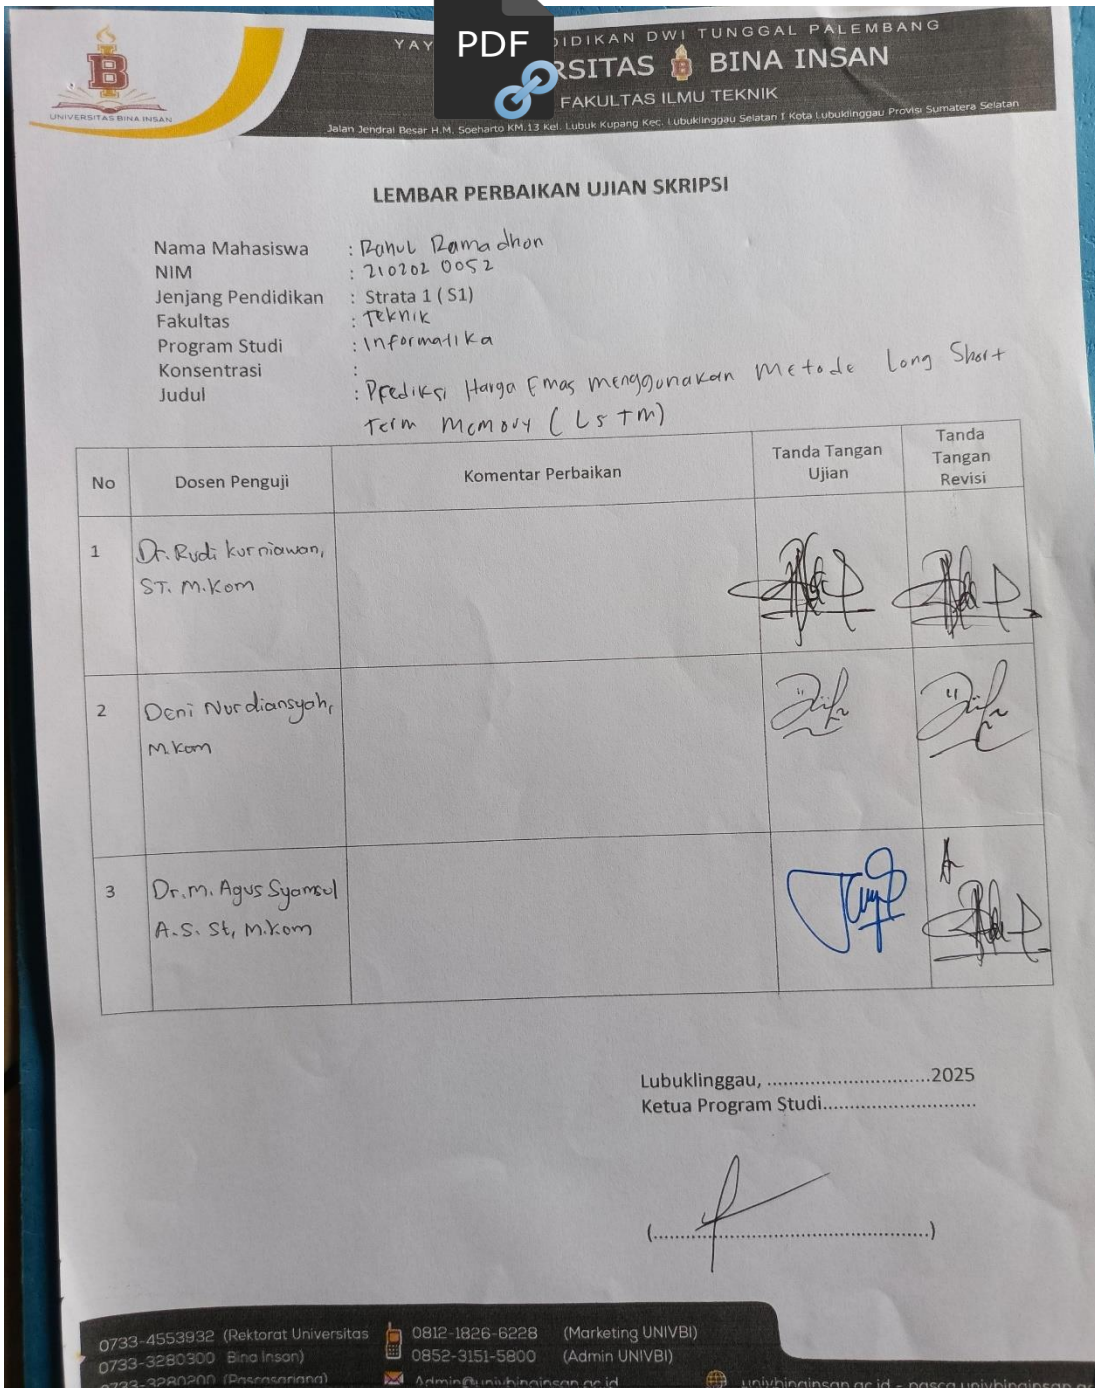 PDF
B
UNIVERSITAS BINA INSAN
YAY DIDIKAN DWI TUNGGAL PALEMBANG
RSITAS B BINA INSAN
FAKULTAS ILMU TEKNIK
Jalan Jendral Besar H.M. Soeharto KM.13 Kel. Lubuk Kupang Kec. Lubuklinggau Selatan I Kota Lubuklinggau Provisi Sumatera Selatan
LEMBAR PERBAIKAN UJIAN SKRIPSI
Nama Mahasiswa : Rahul Ramadhon
NIM : 210202 0052
Jenjang Pendidikan : Strata 1 (S1)
Fakultas : Teknik
Program Studi : Informatika
Konsentrasi :
Judul : Prediksi Harga Emas menggunakan Metode Long Short
Term Memory (LSTM)
No Dosen Penguji Komentar Perbaikan Tanda Tangan Ujian Tanda Tangan Revisi
1 Dr. Rudi Kurniawan,
ST. M.Kom
2 Deni Nurdiansyah,
M.Kom
3 Dr. M. Agus Syamsul
A.S. St, M.Kom
Lubuklinggau, ...............................2025
Ketua Program Studi.............................
(.....................................................)
0733-4553932 (Rektorat Universitas
0733-3280300 Bina Insan)
0733-3280200 (Pascasarjana)
0812-1826-6228 (Marketing UNIVBI)
0852-3151-5800 (Admin UNIVBI)
Admin@univbinainsan.ac.id
univbinainsan.ac.id - pasca.univbinainsan.ac